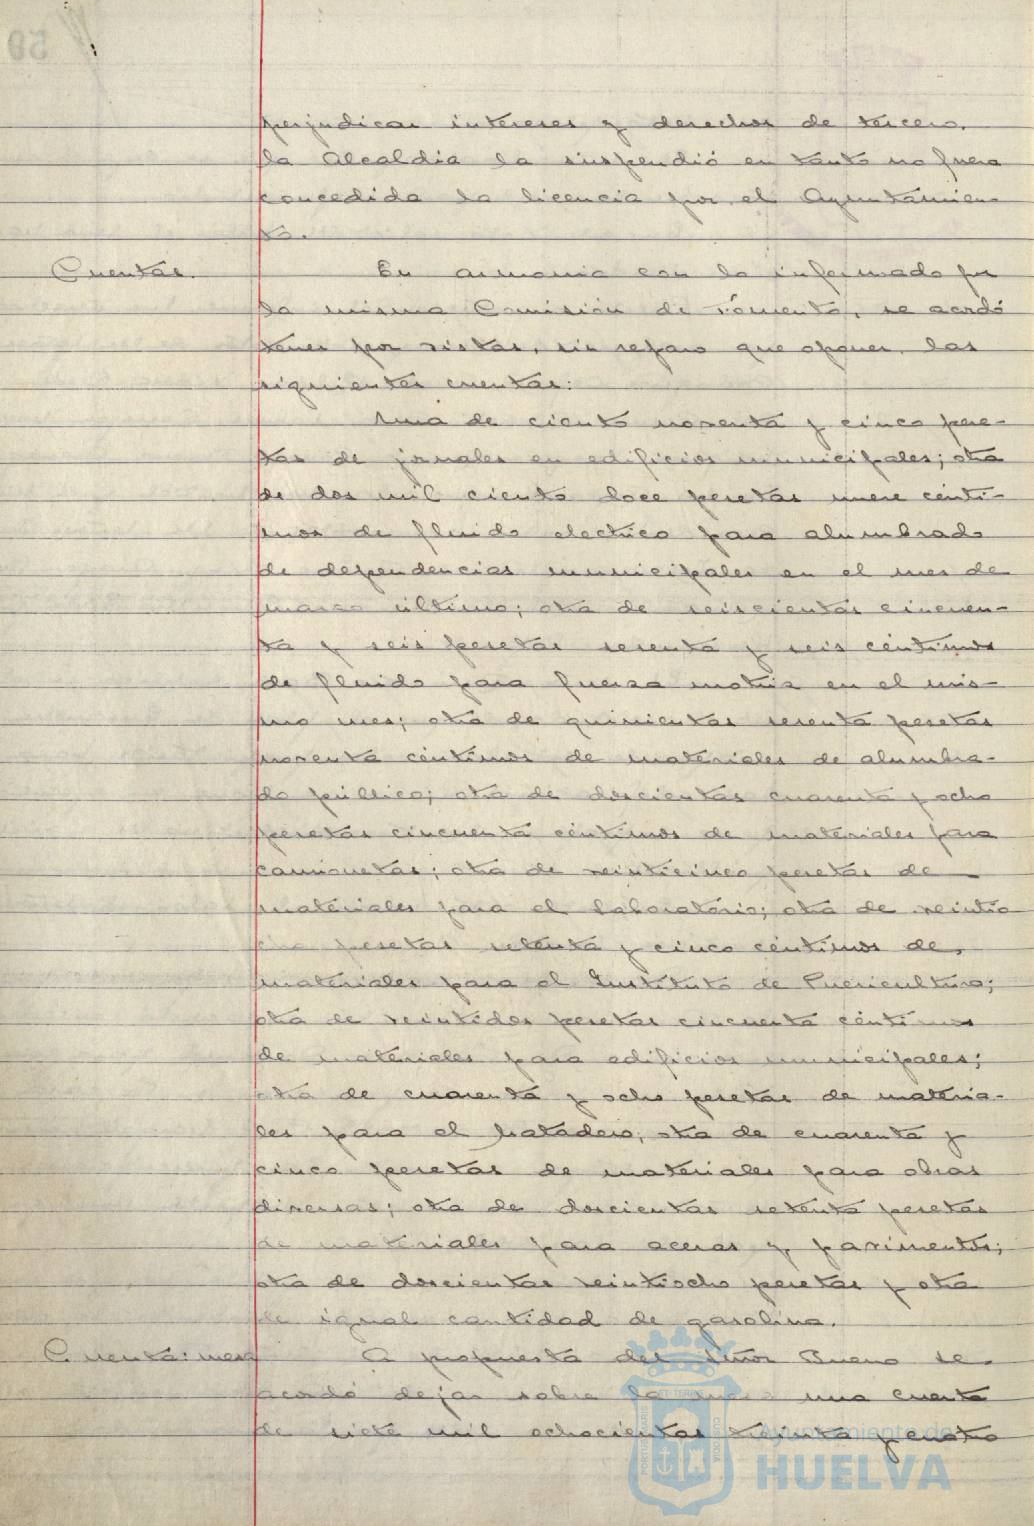 perjudicar intereses y derechos de tercero.
la Alcaldia la suspendió en tanto no fuera
concedida la licencia por el Ayuntamien-
to.
Cuentas. En armonia con lo informado por
la misma Comisión de Fomento, se acordó
tener por vistas, sin reparo que oponer, las
siguientes cuentas:
Una de ciento noventa y cinco pese-
tas de jornales en edificios municipales; otra
de dos mil ciento doce pesetas nueve cénti-
mos de fluido electrico para alumbrado
de dependencias municipales en el mes de
marzo último; otra de seiscientas cincuen-
ta y seis pesetas sesenta y seis céntimos
de fluido para fuerza motriz en el mis-
mo mes; otra de quinientas sesenta pesetas
noventa céntimos de materiales de alumbra-
do público; otra de doscientas cuarenta y ocho
pesetas cincuenta céntimos de materiales para
camionetas; otra de veinticinco pesetas de
materiales para el Laboratorio; otra de veintio
cho pesetas setenta y cinco céntimos de
materiales para el Instituto de Puericultura;
otra de veintidos pesetas cincuenta céntimos
de materiales para edificios municipales;
otra de cuarenta y ocho pesetas de materia-
les para el Matadero; otra de cuarenta y
cinco pesetas de materiales para obras
diversas; otra de doscientas setenta pesetas
de materiales para aceras y pavimentos;
otra de doscientas veintiocho pesetas y otra
de igual cantidad de gasolina.
Cuenta: mesa A propuesta del Señor Bueno se
acordó dejar sobre la mesa una cuenta
de siete mil ochocientas treinta y cuatro
50
Ayuntamiento de
HUELVA